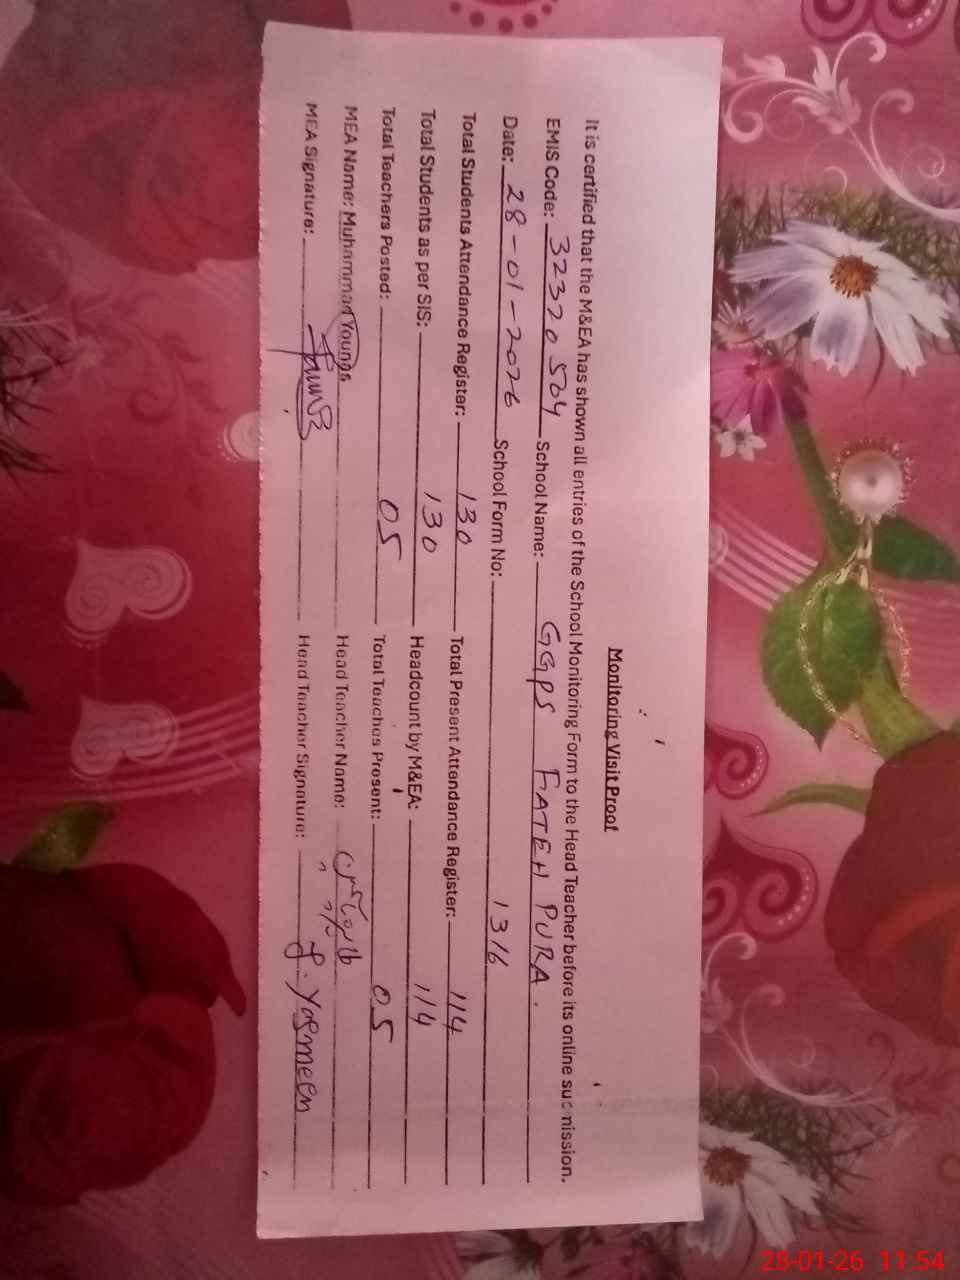 Monitoring Visit Proof
It is certified that the M&EA has shown all entries of the School Monitoring Form to the Head Teacher before its online submission.
EMIS Code: 32320504 School Name: GGPS FATEH PURA.
Date: 28-01-2026 School Form No: 1316
Total Students Attendance Register: 130 Total Present Attendance Register: 114
Total Students as per SIS: 130 Headcount by M&EA: 114
Total Teachers Posted: 05 Total Teaches Present: 05
MEA Name: Muhammad Younas Head Teacher Name:
MEA Signature: Head Teacher Signature: Yasmeen
28-01-26 11:54